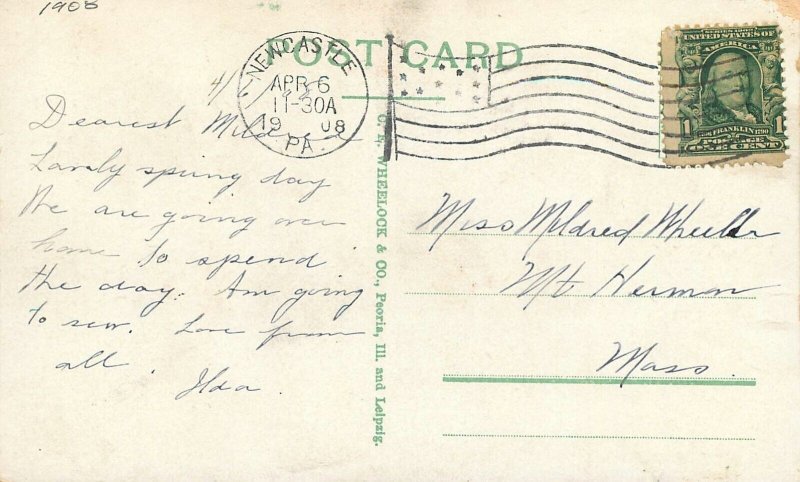 1908
POST CARD
NEWCASTLE
APR 6
11-30A
1908
PA.
SERIES 1902
UNITED STATES OF AMERICA
1
FRANKLIN 1790
POSTAGE
ONE CENT
4/6/
Dearest Mild
Lovely spring day
We are going over
home to spend
the day. Am going
to sew. Love from
all.
Ilda
C. T. WHEELOCK & CO., Peoria, Ill. and Leipzig.
Miss Mildred Wheeler
Mt Hermon
Mass.